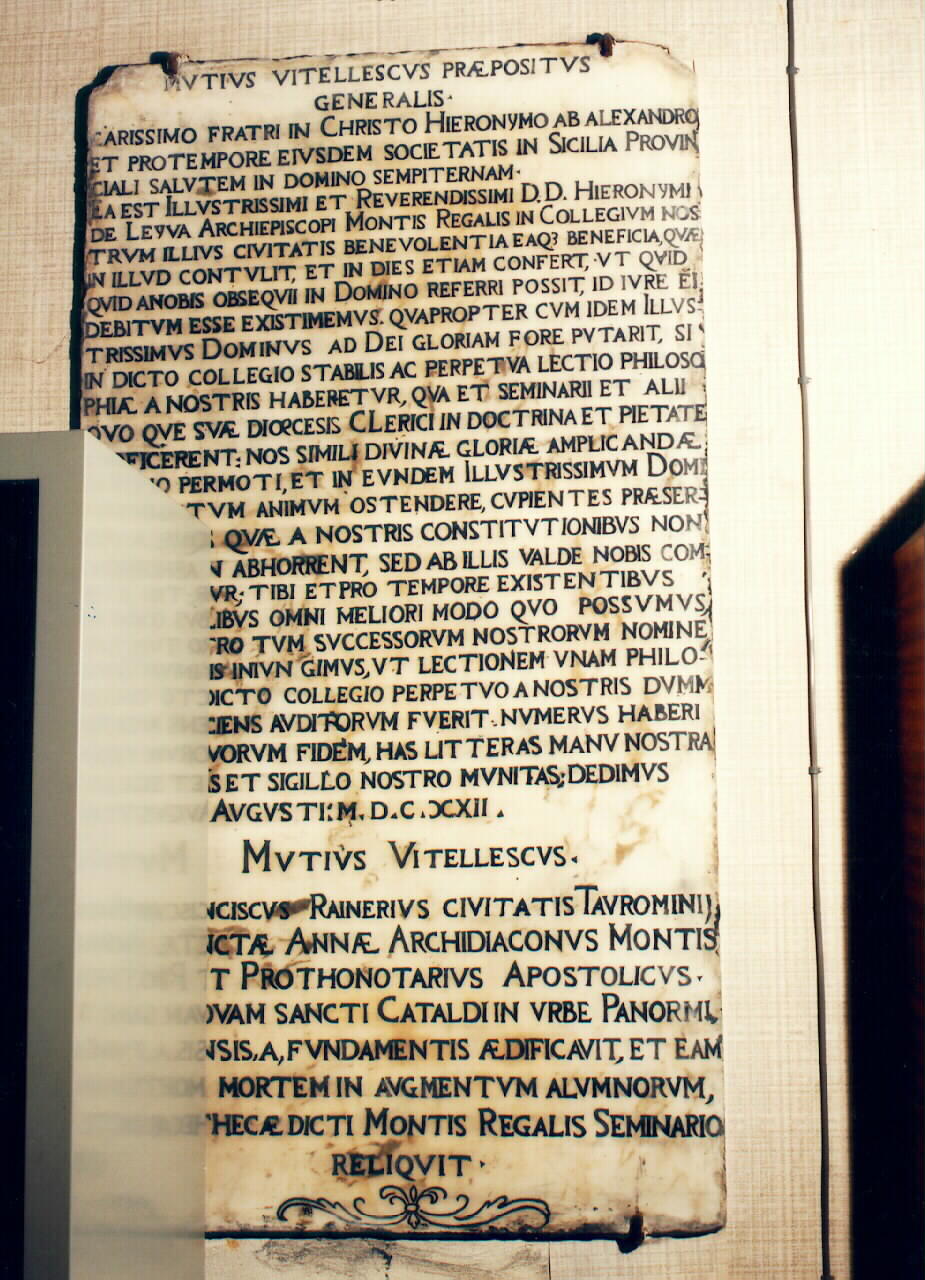 MVTIVS VITELLESCVS PRÆPOSITVS
GENERALIS.
CARISSIMO FRATRI IN CHRISTO HIERONYMO AB ALEXANDRO
ET PROTEMPORE EIVSDEM SOCIETATIS IN SICILIA PROVIN
CIALI SALVTEM IN DOMINO SEMPITERNAM.
EA EST ILLVSTRISSIMI ET REVERENDISSIMI D.D. HIERONYMI
DE LEYVA ARCHIEPISCOPI MONTIS REGALIS IN COLLEGIVM NOS
TRVM ILLIVS CIVITATIS BENEVOLENTIA EAQ3 BENEFICIA, QVÆ
IN ILLVD CONTVLIT, ET IN DIES ETIAM CONFERT, VT QVID
QVID ANOBIS OBSEQVII IN DOMINO REFERRI POSSIT, ID IVRE EI
DEBITVM ESSE EXISTIMEMVS. QVAPROPTER CVM IDEM ILLVS-
TRISSIMVS DOMINVS AD DEI GLORIAM FORE PVTARIT, SI
IN DICTO COLLEGIO STABILIS AC PERPETVA LECTIO PHILOSO
PHIÆ A NOSTRIS HABERETVR, QVA ET SEMINARII ET ALII
QVO QVE SVÆ DIOECESIS CLERICI IN DOCTRINA ET PIETATE
FICERENT: NOS SIMILI DIVINÆ GLORIÆ AMPLICANDÆ
PERMOTI, ET IN EVNDEM ILLVSTRISSIMVM DOMI
TVM ANIMVM OSTENDERE, CVPIENTES PRÆSER-
QVÆ A NOSTRIS CONSTITVTIONIBVS NON
ABHORRENT, SED AB ILLIS VALDE NOBIS COM-
VR; TIBI ET PRO TEMPORE EXISTENTIBVS
IBVS OMNI MELIORI MODO QVO POSSVMVS,
RO TVM SVCCESSORVM NOSTRORVM NOMINE
IS INIVN GIMVS, VT LECTIONEM VNAM PHILO-
DICTO COLLEGIO PERPETVO A NOSTRIS DVMM
CIENS AVDITORVM FVERIT NVMERVS HABERI
VORVM FIDEM, HAS LITTERAS MANV NOSTRA
S ET SIGILLO NOSTRO MVNITAS; DEDIMVS
AVGVSTI: M.D.C.XXII.
MVTIVS VITELLESCVS.
NCISCVS RAINERIVS CIVITATIS TAVROMINIJ
NCTÆ ANNÆ ARCHIDIACONVS MONTIS
T PROTHONOTARIVS APOSTOLICVS.
QVAM SANCTI CATALDI IN VRBE PANORMI,
NSIS, A, FVNDAMENTIS ÆDIFICAVIT, ET EAM
MORTEM IN AVGMENTVM ALVMNORVM,
THECÆ DICTI MONTIS REGALIS SEMINARIO
RELIQVIT.